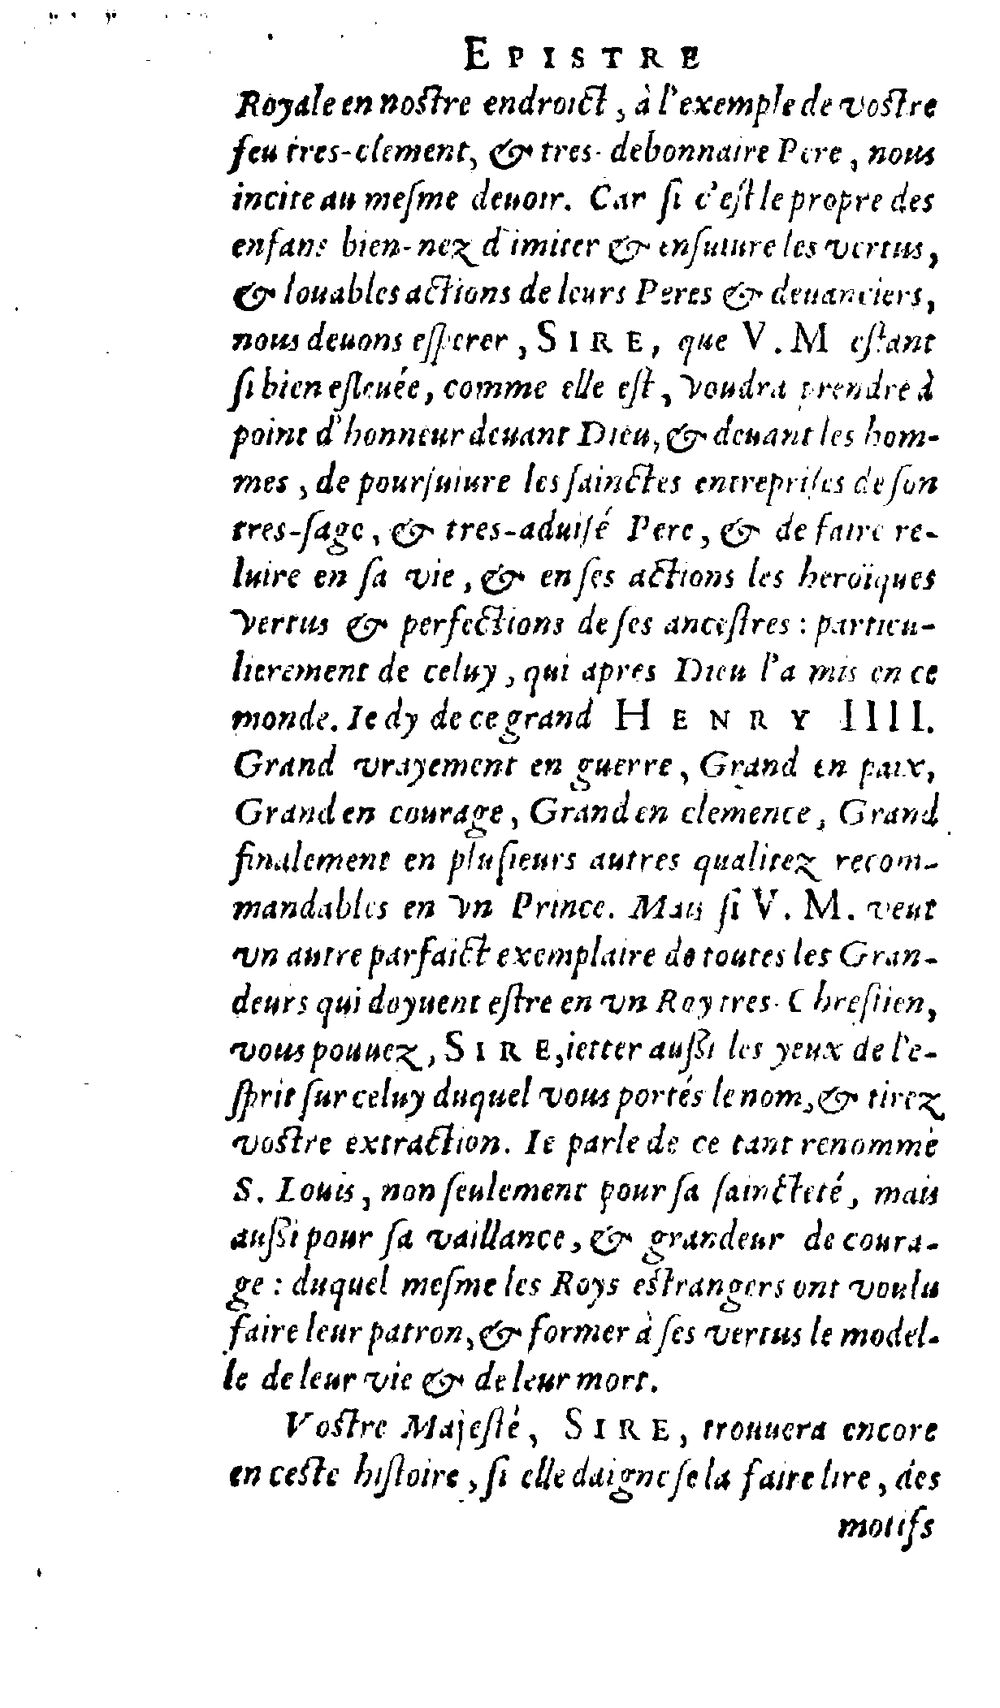 EPISTRE
Royale en nostre endroict, à l'exemple de vostre
feu tres-clement, & tres-debonnaire Pere, nous
incite au meſme deuoir. Car ſi c'eſt le propre des
enfans bien-nez d'imiter & enſuiure les vertus,
& louables actions de leurs Peres & deuanciers,
nous deuons eſperer, SIRE, que V. M eſtant
ſi bien eſleuée, comme elle eſt, voudra prendre à
point d'honneur deuant Dieu, & deuant les hom-
mes, de pourſuiure les ſainctes entrepriſes de ſon
tres-ſage, & tres-aduiſé Pere, & de faire re-
luire en ſa vie, & en ſes actions les heroïques
vertus & perfections de ſes anceſtres : particu-
lierement de celuy, qui apres Dieu l'a mis en ce
monde. Ie dy de ce grand HENRY IIII.
Grand vrayement en guerre, Grand en paix,
Grand en courage, Grand en clemence, Grand
finalement en pluſieurs autres qualitez recom-
mandables en vn Prince. Mais ſi V. M. veut
vn autre parfaict exemplaire de toutes les Gran-
deurs qui doyuent eſtre en vn Roy tres-Chreſtien,
vous pouuez, SIRE, ietter auſſi les yeux de l'e-
ſprit ſur celuy duquel vous portés le nom, & tirez
vostre extraction. Ie parle de ce tant renommé
S. Louis, non ſeulement pour ſa ſaincteté, mais
auſſi pour ſa vaillance, & grandeur de coura-
ge : duquel meſme les Roys eſtrangers ont voulu
faire leur patron, & former à ſes vertus le model-
le de leur vie & de leur mort.
Vostre Majeſté, SIRE, trouuera encore
en ceſte hiſtoire, ſi elle daigne ſe la faire lire, des
motifs